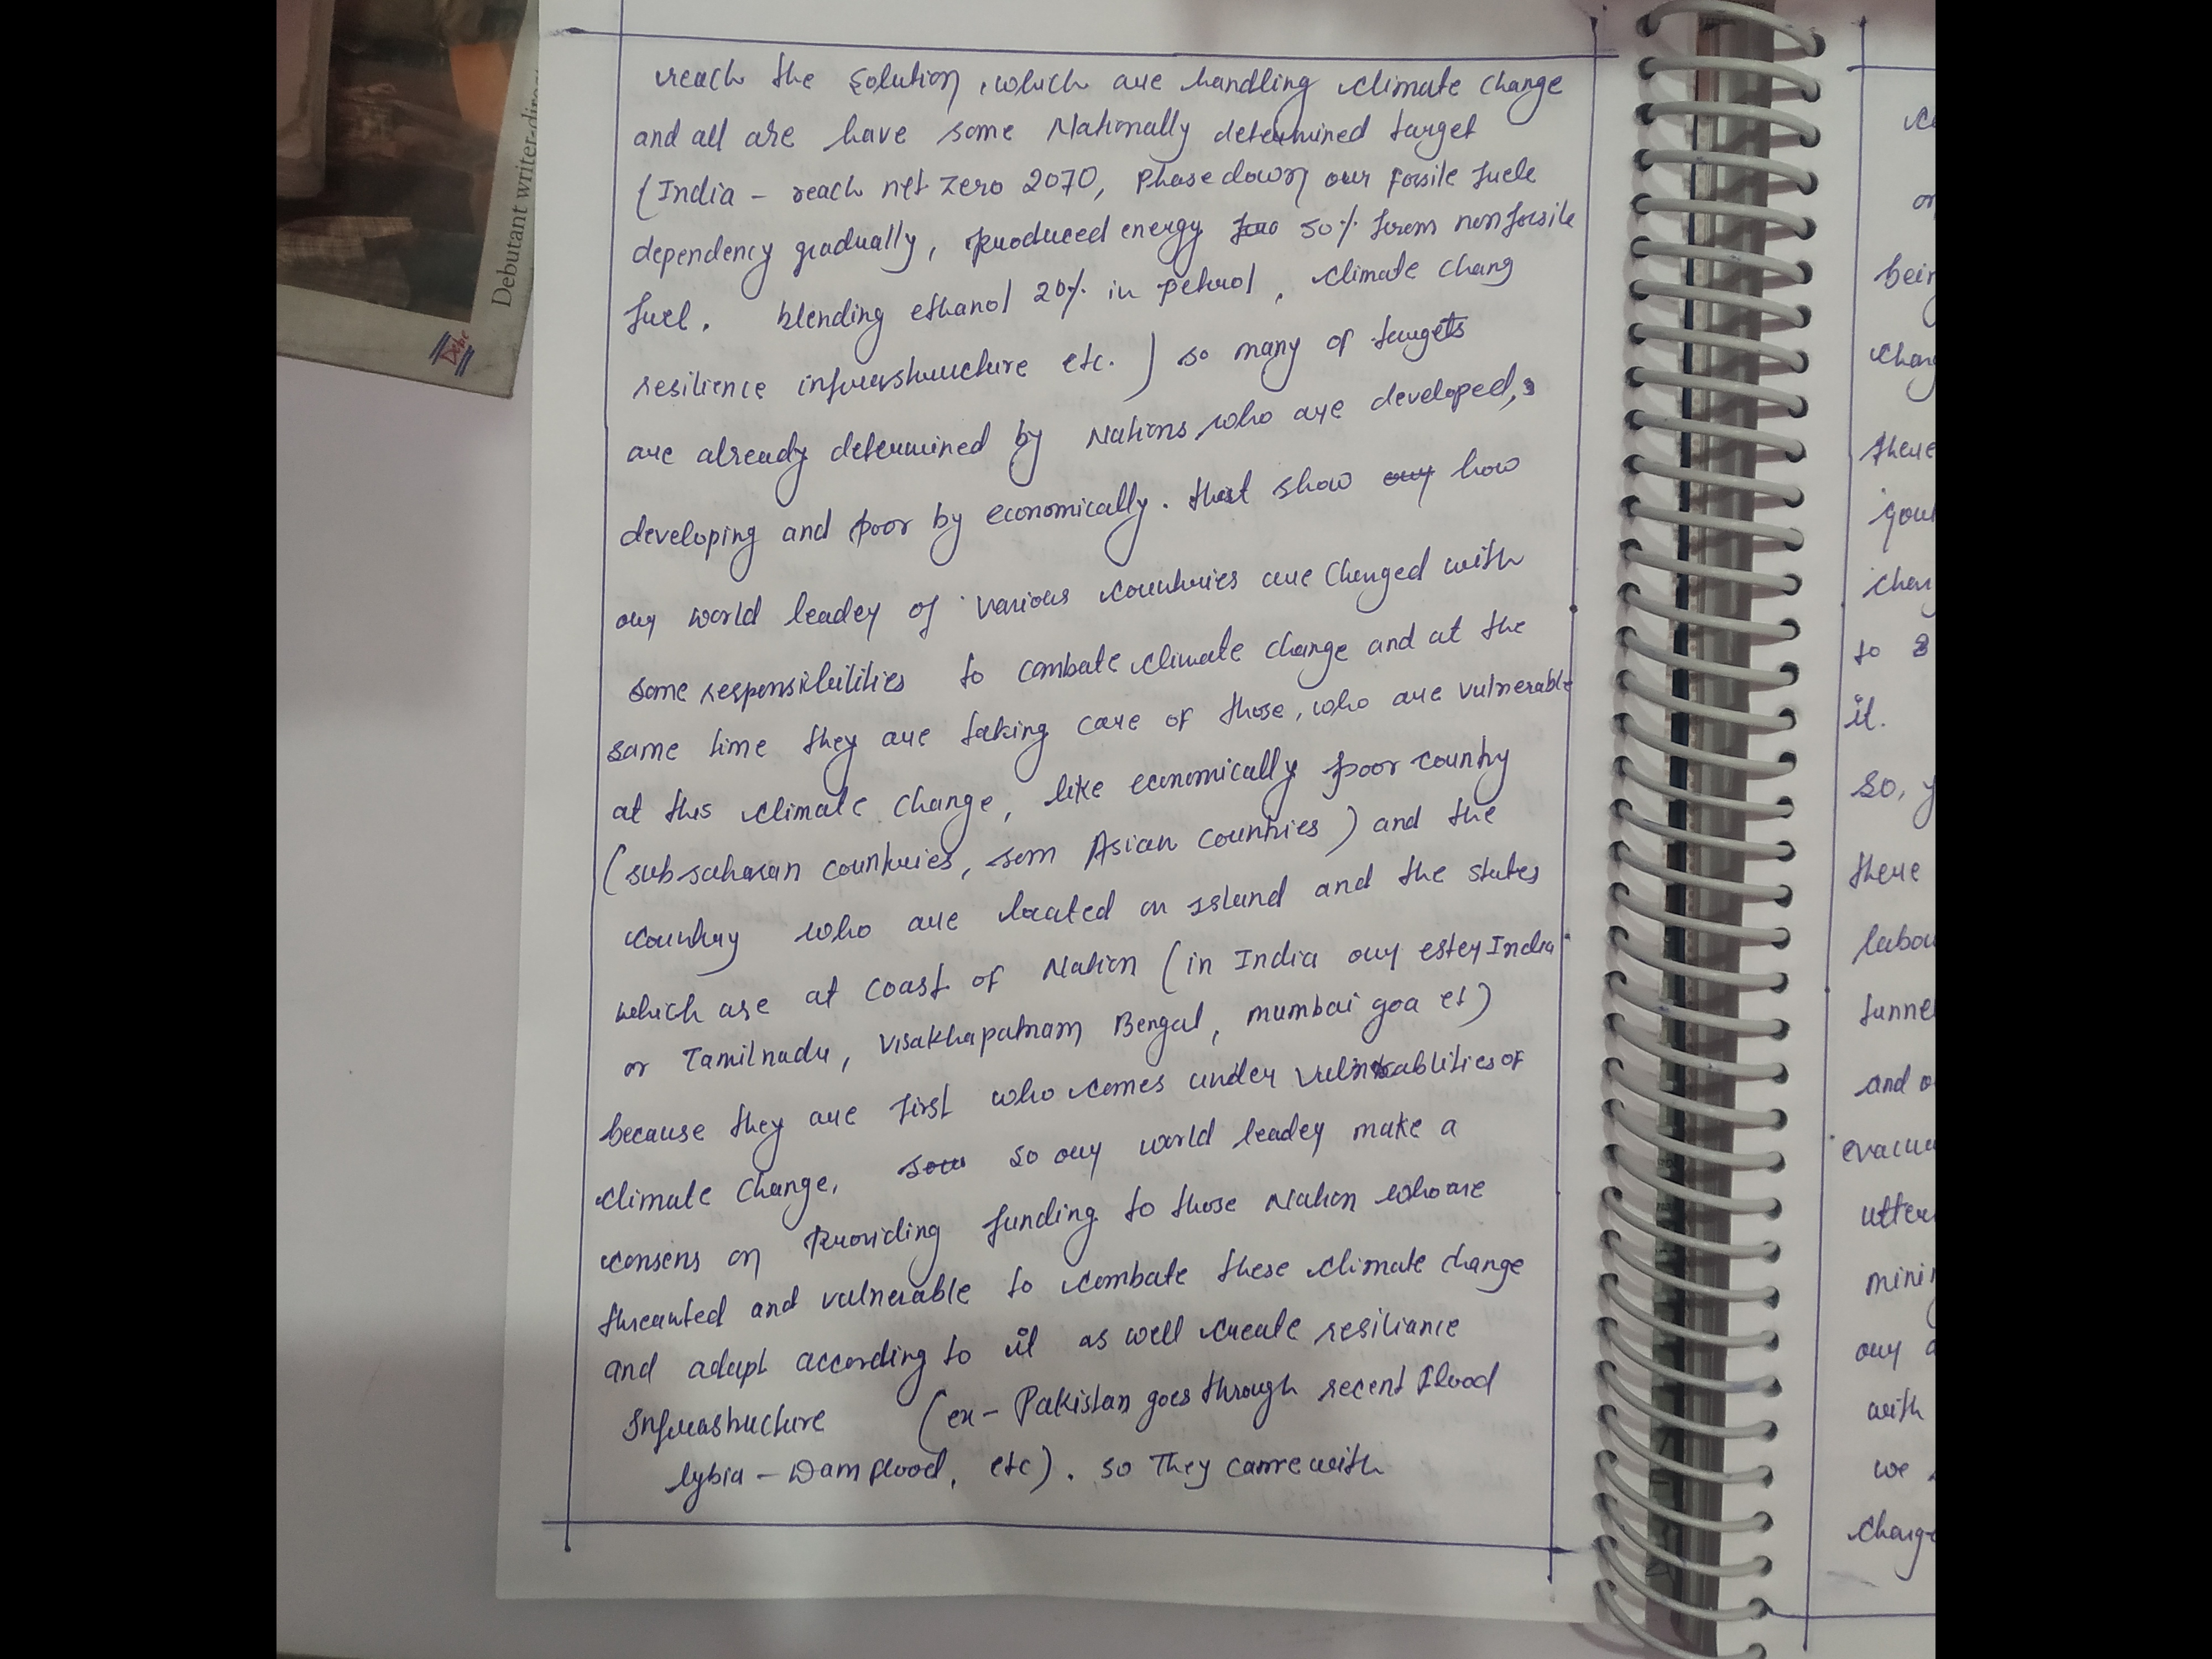 Debutant writer-dire
reach the solution, which are handling climate change
and all are have some Nationally determined target
(India - reach net zero 2070, Phase down our fossile fuele
dependency gradually, produced energy 50% from non fossile
fuel. blending ethanol 20% in petrol, climate chang
resilience infrastructure etc.) so many of targets
are already determined by Nations, who are developed,
developing and poor by economically. that show how
our world leader of various countries are changed with
some responsibilities to combate climate change and at the
same time they are taking care of those, who are vulnerable
at this climate change, like economically poor country
(subsaharan countries, som Asian countries) and the
country who are located on Island and the states
which are at coast of Nation (in India our ester India
or Tamilnadu, Visakhapatnam Bengal, mumbai goa et)
because they are first who comes under vulnerablities of
climate change, so our world leader make a
consens on Providing funding to those Nation who are
threanted and vulnerable to combate these climate change
and adapt according to it as well create resiliance
Infrastructure (ex- Pakistan goes through recent flood
lybia - Dam flood, etc). so They came with
on
bein
there
to
it.
so, y
there
labou
tunne
and o
evacua
utter
mini
our
with
we